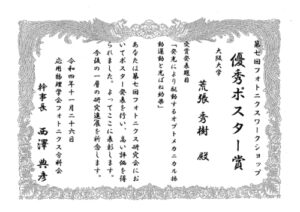 第七回フォトニクスワークショップ
優秀ポスター賞
大阪大学
荒張 秀樹 殿
受賞発表題目
「発光により駆動するオプトメカニカル振
動運動と光ばね効果」
あなたは第七回フォトニクス研究会にお
いてポスター発表を行い、高い評価を得
られました。よってここに表彰します。
今後の一層の研究進展を祈念します。
令和四年十一月二十六日
応用物理学会フォトニクス分科会
幹事長 西澤 典彦